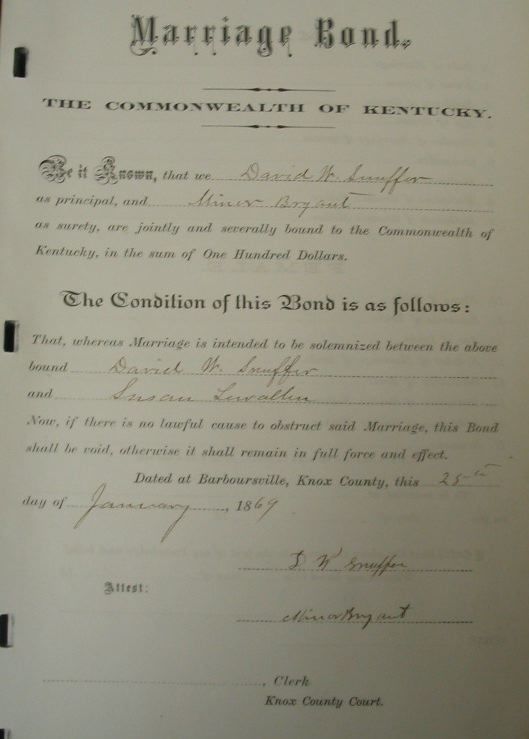 Marriage Bond.
THE COMMONWEALTH OF KENTUCKY.
Be it Known, that we David W. Snuffer
as principal, and Minor Bryant
as surety, are jointly and severally bound to the Commonwealth of
Kentucky, in the sum of One Hundred Dollars.
The Condition of this Bond is as follows:
That, whereas Marriage is intended to be solemnized between the above
bound David W. Snuffer
and Susan Lewallen
Now, if there is no lawful cause to obstruct said Marriage, this Bond
shall be void, otherwise it shall remain in full force and effect.
Dated at Barboursville, Knox County, this 25th
day of January, 1869
D W Snuffer
Attest:
Minor Bryant
, Clerk
Knox County Court.